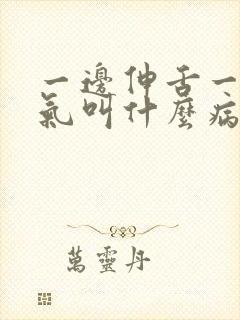 一邊伸舌一
氣叫什麼病
萬靈丹